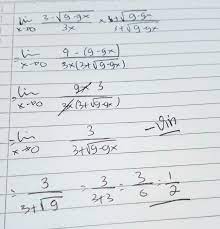 lim x→0 3-√9-9x / 3x × 3+√9-9x / 3+√9-9x
= lim x→0 9-(9-9x) / 3x(3+√9-9x)
= lim x→0 9x 3 / 3x(3+√9-9x)
= lim x→0 3 / 3+√9-9x
= 3 / 3+√9 = 3 / 3+3 = 3 / 6 = 1 / 2